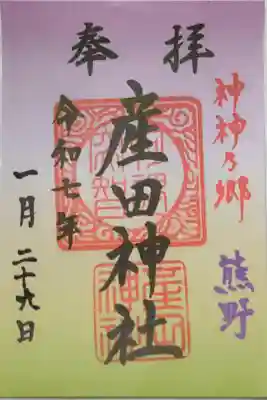 奉拝
神神乃郷
熊野
産田神社
令和七年
一月二十九日